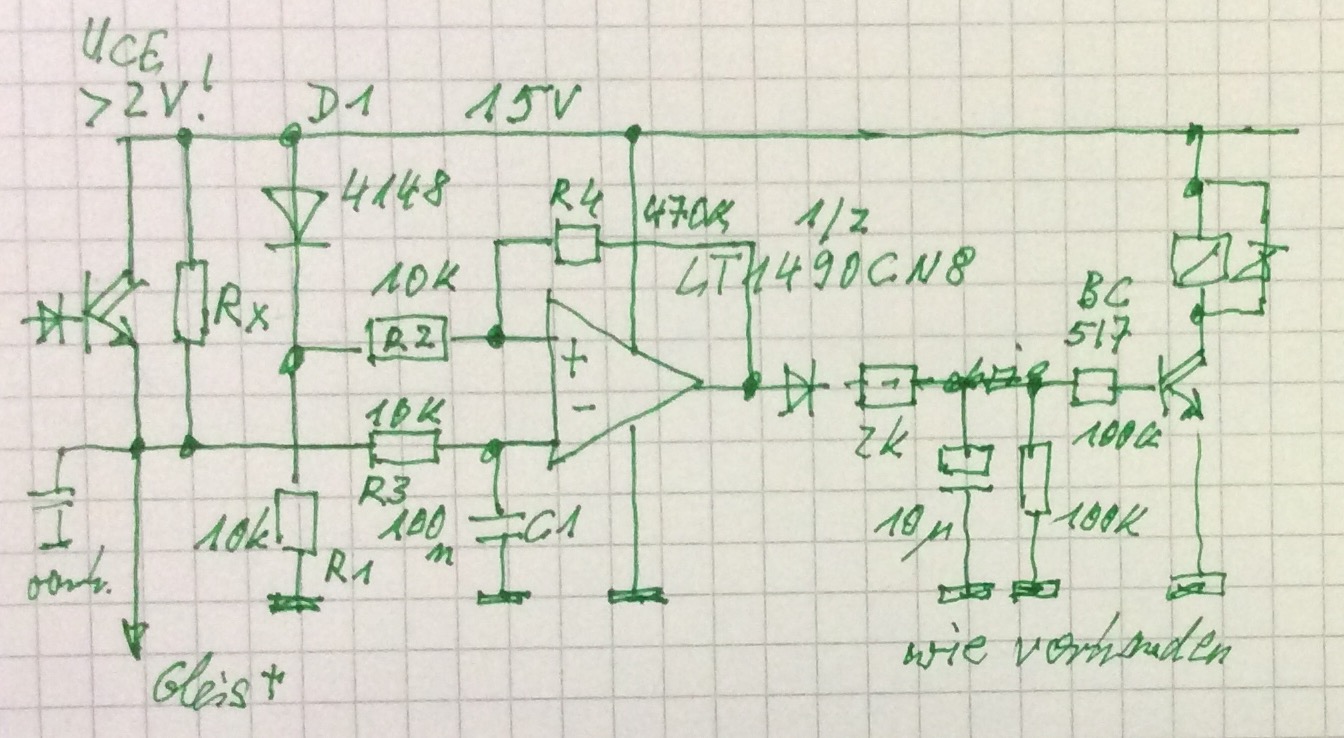 UCE
>2V!
D1
15V
4148
R4
470K
1/2
LT1490CN8
10K
BC
517
Rx
R2
+
-
10K
2k
100k
R3
10k
100
n
C1
10µ
100K
vorh.
R1
wie vorhanden
Gleis+